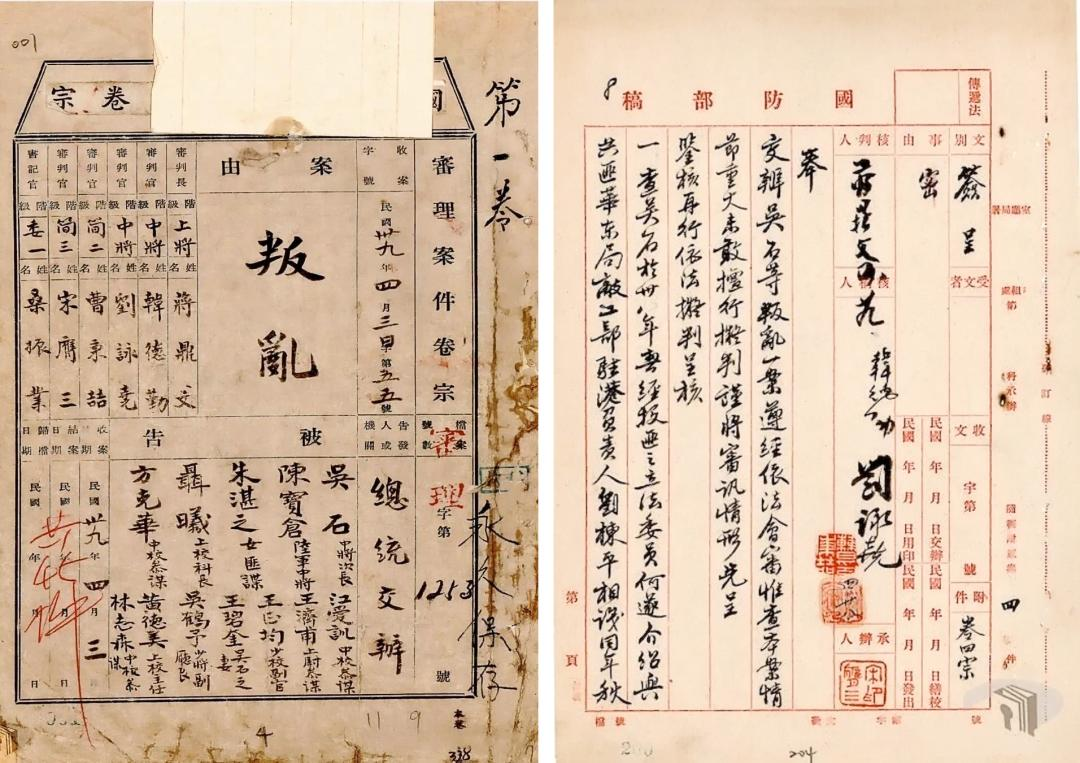 001
宗卷
國
第一卷
審理案件卷宗
收案
字號
民國卅九年四月三日字第五五號
案由
叛亂
審判長
階級
上將
姓名
蔣鼎文
審判官
階級
中將
姓名
韓德勤
審判官
階級
中將
姓名
劉詠堯
審判官
階級
簡二
姓名
曹秉喆
審判官
階級
簡三
姓名
宋膺三
書記官
階級
委一
姓名
桑振業
檔案號數
審理
字第
1253
號
永久保存
告發人或機關
總統交辦
被告
吳石 中將次長
江愛訓 中校參謀
陳寶倉 陸軍中將
王濟甫 上尉參謀
朱湛之 女匪諜
王正均 少校副官
王碧奎 吳石之妻
聶曦 上校科長
吳鶴予 少將副廳長
方克華 中校參謀
黃德美 上校主任
林志森 中校參謀
收案日期
民國卅九年四月三日
結案日期
民國 年 月 日
歸檔日期
民國 年 月 日
4
11
9
本卷
338
國防部稿
8
傳遞法
文別
簽呈
受文者
收文
字第 號
附件
卷四宗
事由
密
民國 年 月 日交辦
民國 年 月 日繕校
民國 年 月 日用印
民國 年 月 日發出
核判人
蔣鼎文
核稿人
韓德勤
劉詠堯
承辦人
奉
交辦吳石等叛亂一案遵經依法會審惟查本案情
節重大未敢擅行擬判謹將審訊情形先呈
鑒核再行依法擬判呈核
一查吳石於卅八年春經投匪之立法委員何遂介紹與
共匪華東局敵工部駐港負責人劉棟平相識同年秋
第 頁
檔號
號
204